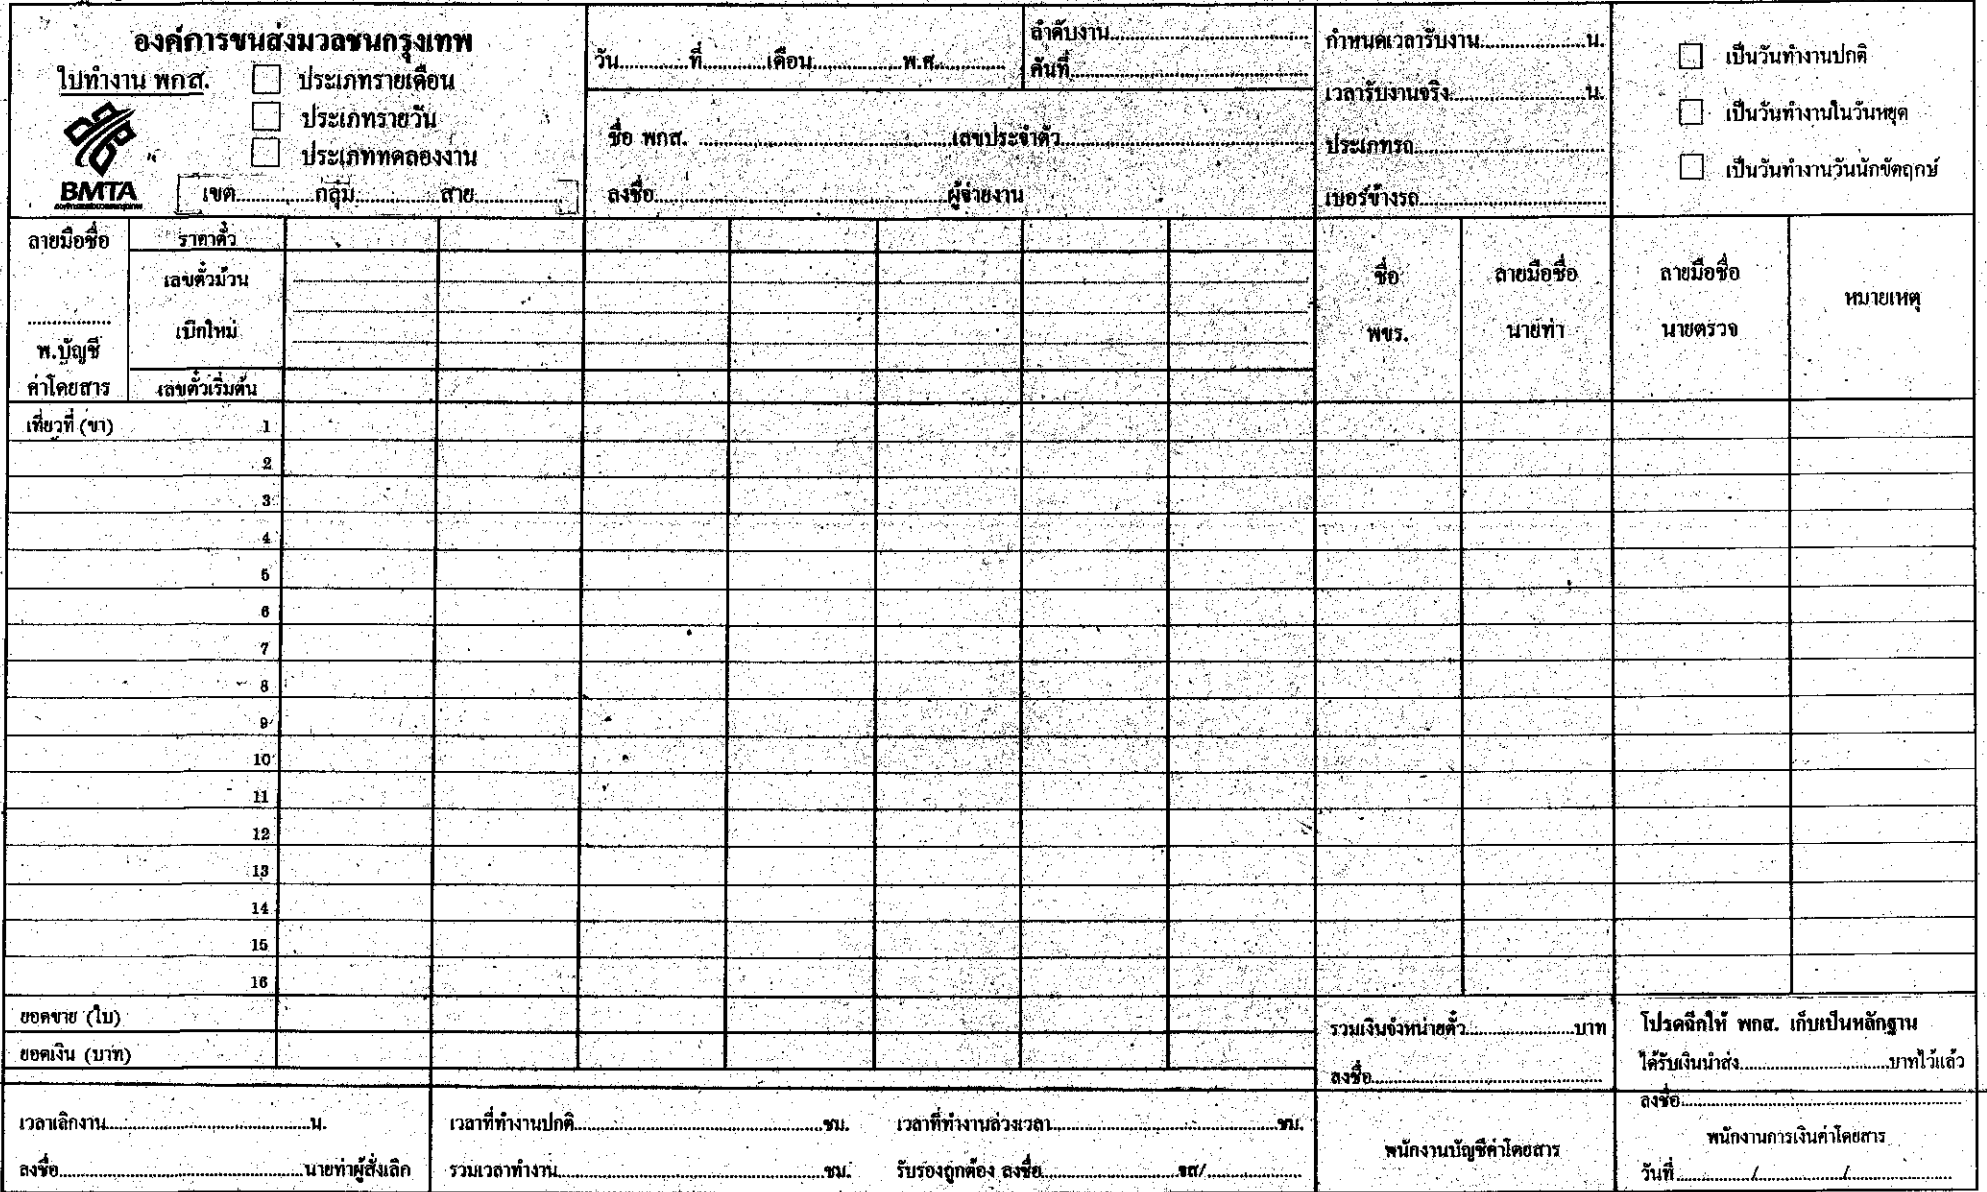 องค์การขนส่งมวลชนกรุงเทพ
ใบทำงาน พกส.
ประเภทรายเดือน
ประเภทรายวัน
ประเภททดลองงาน
BMTA
เขต............กลุ่ม............สาย............
วัน............ที่............เดือน............พ.ศ............
ลำดับงาน............
คันที่............
ชื่อ พกส. ............เลขประจำตัว............
ลงชื่อ............ผู้จ่ายงาน
กำหนดเวลารับงาน............น.
เวลารับงานจริง............น.
ประเภทรถ............
เบอร์ข้างรถ............
เป็นวันทำงานปกติ
เป็นวันทำงานในวันหยุด
เป็นวันทำงานวันนักขัตฤกษ์
ลายมือชื่อ
............
พ.บัญชี
ค่าโดยสาร
ราคาตั๋ว
เลขตั๋วม้วน
เบิกใหม่
เลขตั๋วเริ่มต้น
ชื่อ
พขร.
ลายมือชื่อ
นายท่า
ลายมือชื่อ
นายตรวจ
หมายเหตุ
เที่ยวที่ (ขา) 1
2
3
4
5
6
7
8
9
10
11
12
13
14
15
16
ยอดขาย (ใบ)
ยอดเงิน (บาท)
รวมเงินจำหน่ายตั๋ว............บาท
ลงชื่อ............
พนักงานบัญชีค่าโดยสาร
โปรดฉีกให้ พกส. เก็บเป็นหลักฐาน
ได้รับเงินนำส่ง............บาทไว้แล้ว
ลงชื่อ............
พนักงานการเงินค่าโดยสาร
วันที่............/............/............
เวลาเลิกงาน............น.
ลงชื่อ............นายท่าผู้สั่งเลิก
เวลาที่ทำงานปกติ............ชม.
เวลาที่ทำงานล่วงเวลา............ชม.
รวมเวลาทำงาน............ชม.
รับรองถูกต้อง ลงชื่อ............ขส/............